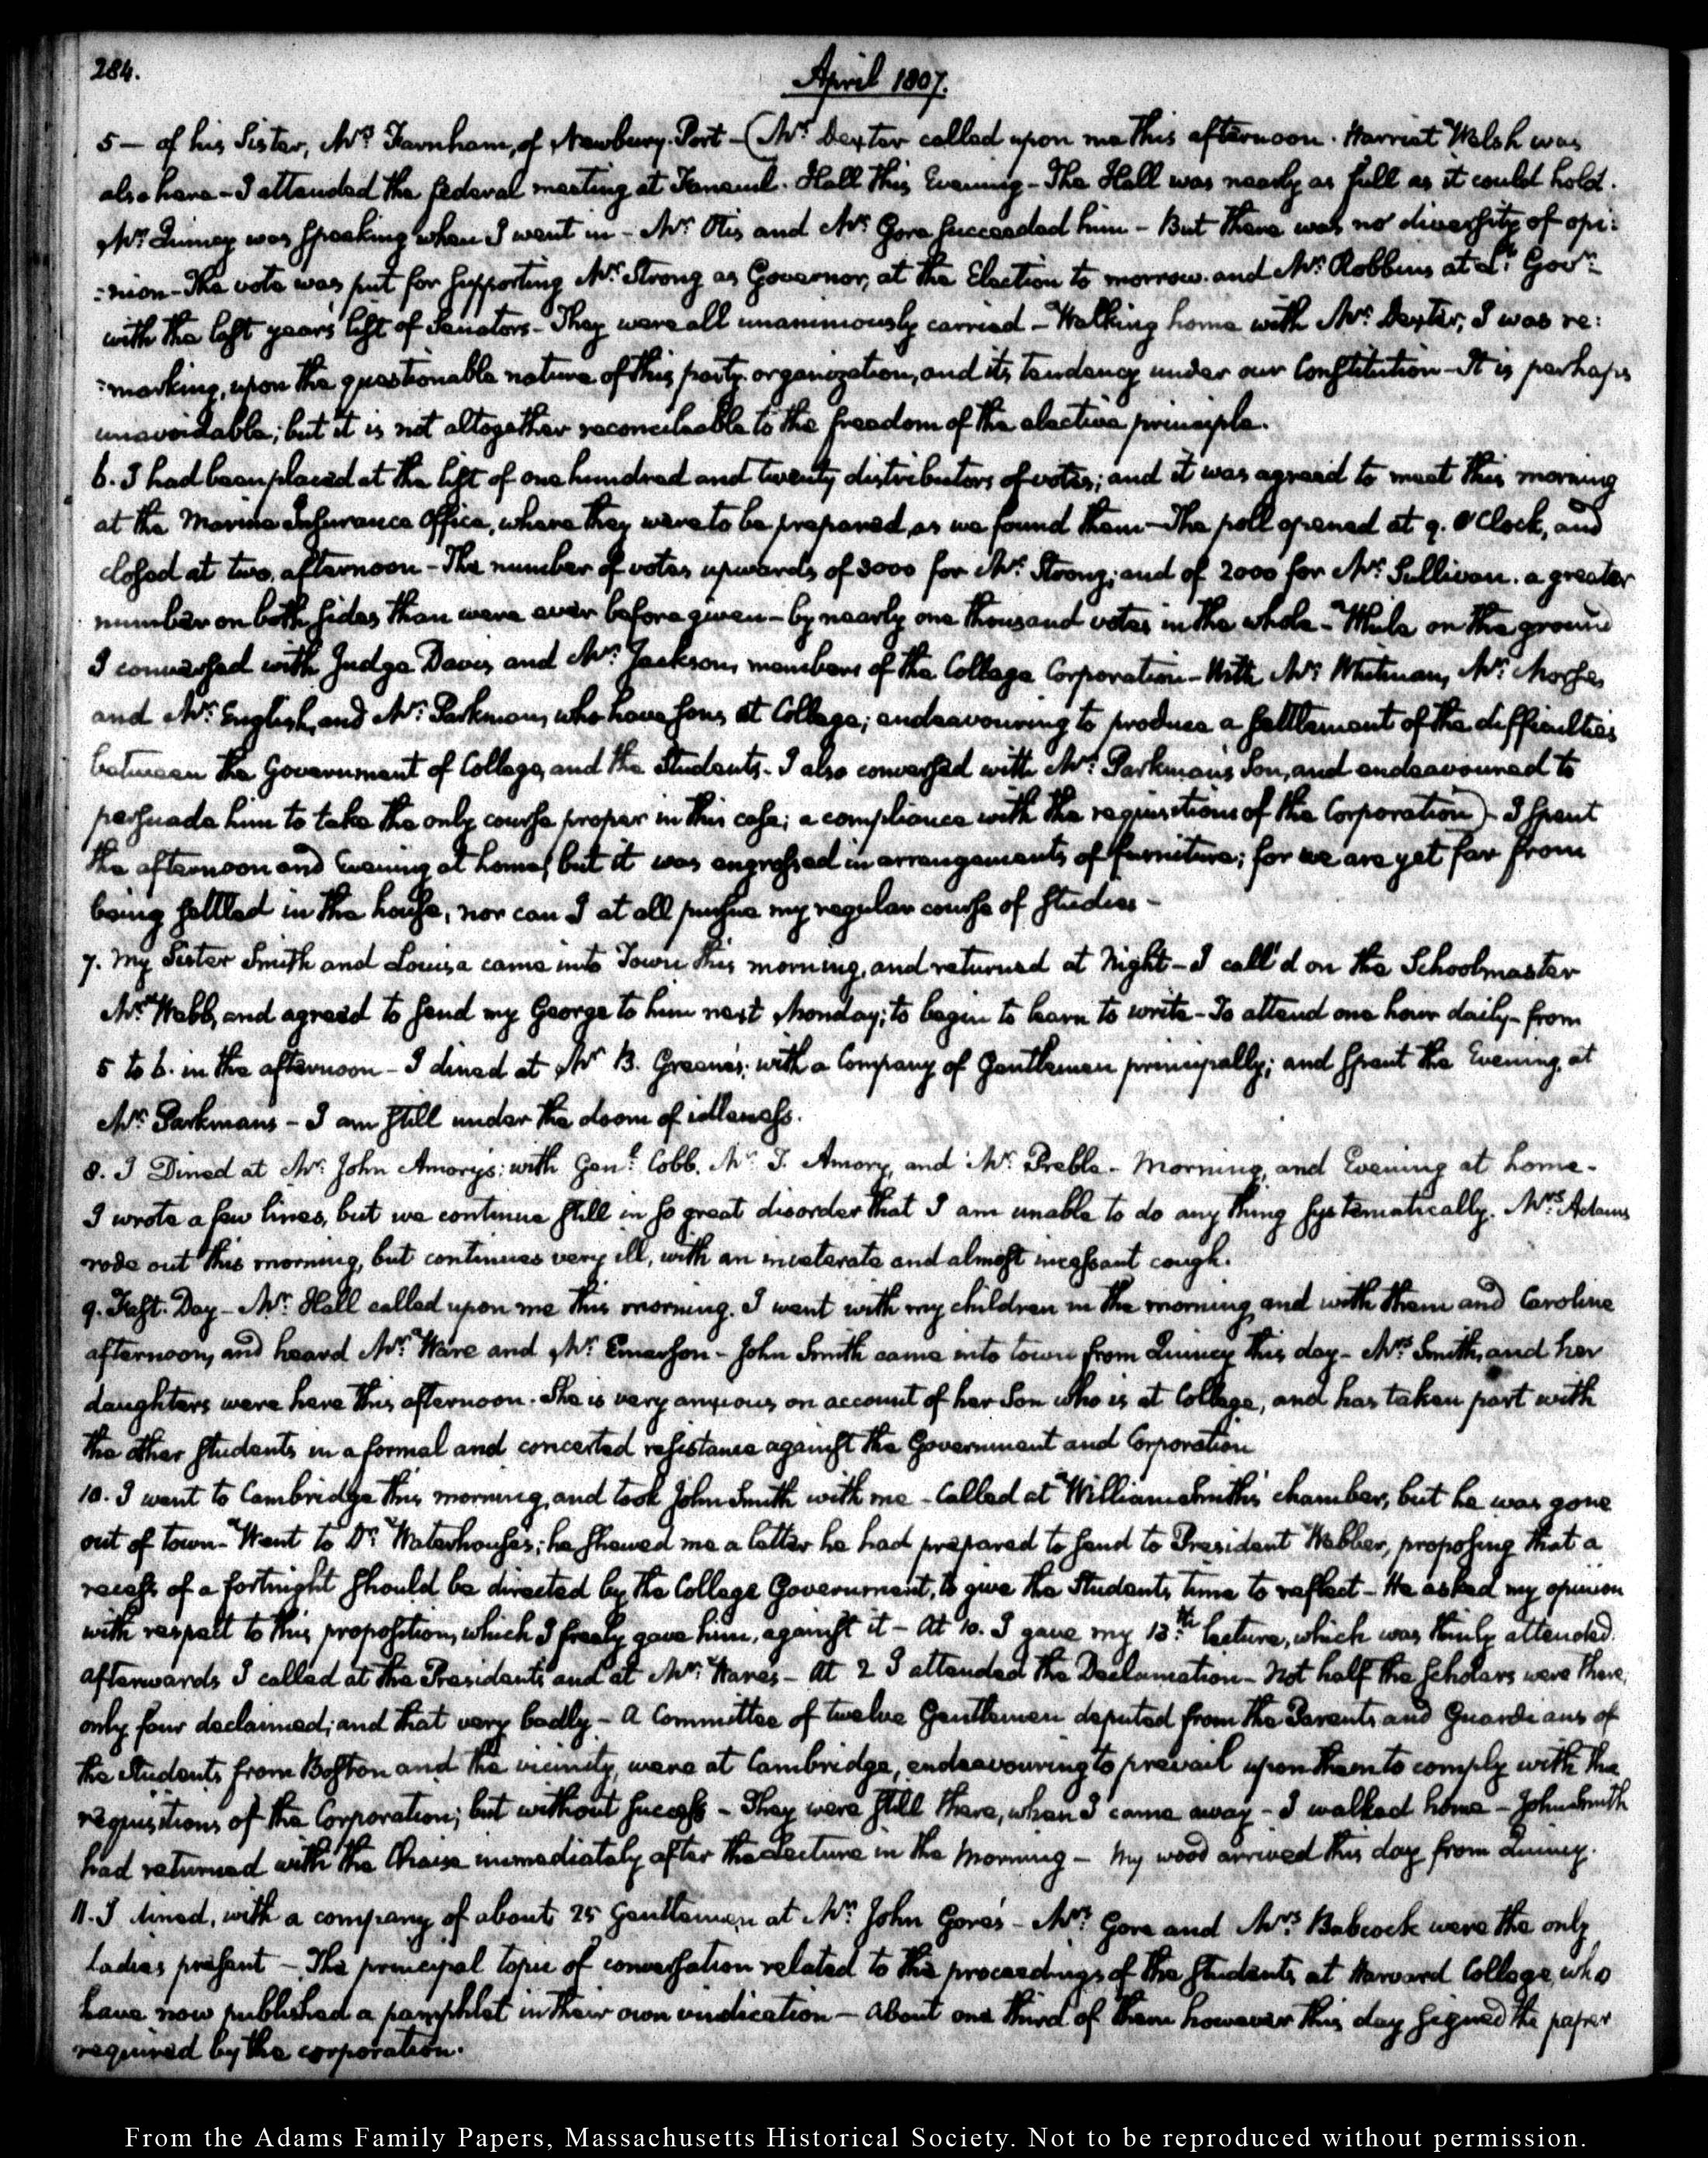 284.
April 1807.
5 — of his Sister, Mrs. Farnham, of Newbury-Port — (Mr. Dexter called upon me this afternoon. Harriet Welsh was
also here — I attended the federal meeting at Faneuil-Hall this Evening — The Hall was nearly as full as it could hold.
Mr. Quincy was speaking when I went in — Mr. Otis and Mr. Gore succeeded him — But there was no diversity of opi:
:nion — The vote was put for supporting Mr. Strong as Governor, at the Election to morrow. and Mr. Robbins at Lt. Govr.
with the last years list of Senators — They were all unanimously carried — Walking home with Mr. Dexter, I was re:
:marking, upon the questionable nature of this party organization, and its tendency under our Constitution — It is perhaps
unavoidable; but it is not altogether reconcileable to the freedom of the elective principle.
6. I had been placed at the list of one hundred and twenty distributors of votes; and it was agreed to meet this morning
at the Marine Insurance Office, where they were to be prepared, as we found them — The poll opened at 9. O'Clock, and
closed at two, afternoon — The number of votes upwards of 3000 for Mr. Strong; and of 2000 for Mr. Sullivan. a greater
number on both sides than were ever before given — by nearly one thousand votes in the whole — While on the ground
I conversed with Judge Davis and Mr. Jackson, members of the College Corporation — With Mr. Whitman, Mr. Morse,
and Mr. English, and Mr. Parkman, who have sons at College; endeavouring to produce a settlement of the difficulties
between the Government of College, and the Students. I also conversed with Mr. Parkman's Son, and endeavoured to
persuade him to take the only course proper in this case; a compliance with the requisitions of the Corporation) — I spent
the afternoon and Evening at home, but it was engrossed in arrangements of furniture; for we are yet far from
being settled in the house, nor can I at all pursue my regular course of studies —
7. My Sister Smith and Louisa came into Town this morning, and returned at Night — I call'd on the Schoolmaster
Mr. Webb, and agreed to send my George to him next Monday; to begin to learn to write — To attend one hour daily — from
5 to 6. in the afternoon — I dined at Mr. B. Greene's; with a Company of Gentlemen principally; and spent the Evening, at
Mr. Parkmans — I am still under the doom of idleness.
8. I Dined at Mr. John Amory's: with Genl. Cobb. Mr. T. Amory, and Mr. Preble — Morning, and Evening at home —
I wrote a few lines, but we continue still in so great disorder that I am unable to do any thing systematically. Mrs. Adams
rode out this morning, but continues very ill, with an inveterate and almost incessant cough.
9. Fast. Day — Mr. Hall called upon me this morning. I went with my children in the morning, and with them and Caroline
afternoon, and heard Mr. Ware and Mr. Emerson — John Smith came into town from Quincy this day — Mrs. Smith, and her
daughters were here this afternoon. She is very anxious on account of her Son who is at College, and has taken part with
the other students in a formal and concerted resistance against the Government and Corporation
10. I went to Cambridge this morning, and took John Smith with me — Called at William Smith's chamber, but he was gone
out of town — Went to Dr. Waterhouse's; he shewed me a letter he had prepared to send to President Webber, proposing that a
recess of a fortnight should be directed by the College Government, to give the Students time to reflect — He asked my opinion
with respect to this proposition, which I freely gave him, against it — At 10. I gave my 13th. lecture, which was thinly attended.
afterwards I called at the Presidents and at Mr. Ware's — At 2 I attended the Declamation — Not half the scholars were there,
only four declaimed; and that very badly — A Committee of twelve Gentlemen deputed from the Parents and Guardians of
the Students from Boston and the vicinity, were at Cambridge, endeavouring to prevail upon them to comply with the
requisitions of the Corporation; but without success — They were still there, when I came away — I walked home — John Smith
had returned with the Chaise immediately after the Lecture in the Morning — My wood arrived this day from Quincy.
11. I dined, with a company of about 25 Gentlemen at Mr. John Gore's — Mrs. Gore and Mrs. Babcock were the only
Ladies present — The principal topic of conversation related to the proceedings of the Students, at Harvard College, who
have now published a pamphlet in their own vindication — About one third of them however this day signed the paper
required by the corporation.
From the Adams Family Papers, Massachusetts Historical Society. Not to be reproduced without permission.